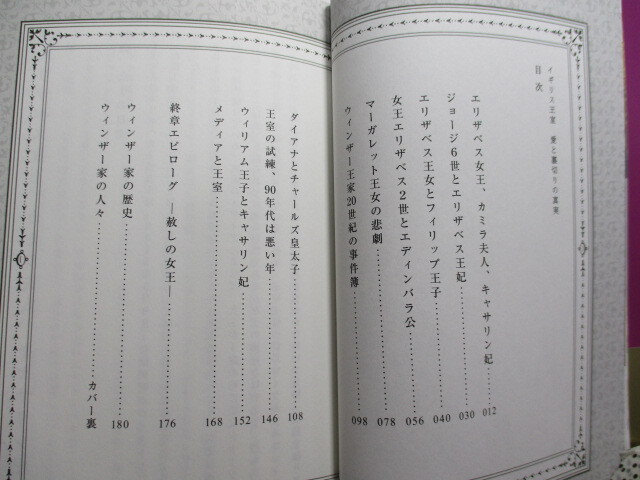 イギリス王室　愛と裏切りの真実
目次
エリザベス女王、カミラ夫人、キャサリン妃………012
ジョージ6世とエリザベス王妃………030
エリザベス王女とフィリップ王子………040
女王エリザベス2世とエディンバラ公………056
マーガレット王女の悲劇………078
ウィンザー王家20世紀の事件簿………098
ダイアナとチャールズ皇太子………108
王室の試練、90年代は悪い年………146
ウィリアム王子とキャサリン妃………152
メディアと王室………168
終章エピローグ　―赦しの女王―………176
ウィンザー家の歴史………180
ウィンザー家の人々………カバー裏